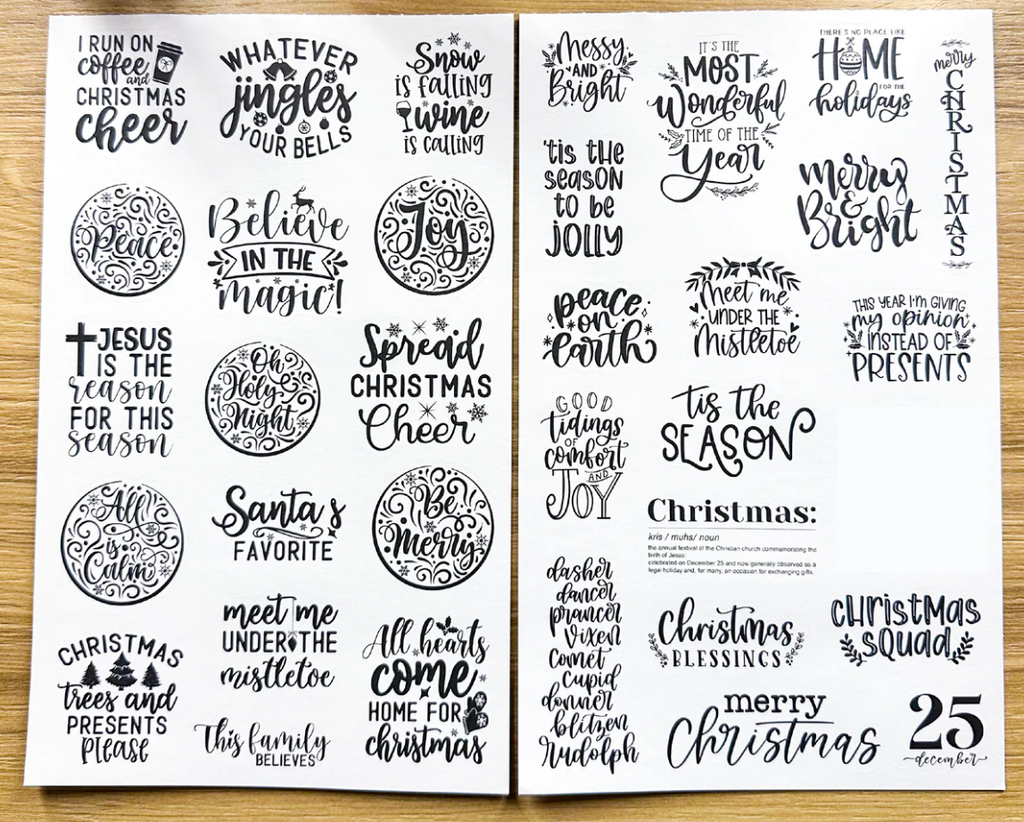 I RUN ON
coffee
and
CHRISTMAS
cheer
WHATEVER
jingles
YOUR BELLS
Snow
is falling
wine
is calling
Peace
Believe
IN THE
magic!
Joy
JESUS
IS THE
reason
FOR THIS
season
Oh
Holy
Night
Spread
CHRISTMAS
Cheer
All
is
Calm
Santa's
FAVORITE
Be
Merry
CHRISTMAS
trees and
PRESENTS
please
meet me
UNDER THE
mistletoe
This family
BELIEVES
All hearts
come
HOME FOR
christmas
Messy
AND
Bright
IT'S THE
MOST
Wonderful
TIME OF THE
Year
THERE'S NO PLACE LIKE
HOME
FOR THE
holidays
merry
CHRISTMAS
'tis the
season
to be
jolly
merry
&
Bright
peace
on
earth
Meet me
UNDER THE
Mistletoe
THIS YEAR I'M GIVING
my opinion
INSTEAD OF
PRESENTS
GOOD
tidings
OF
comfort
AND
JOY
tis the
SEASON
Christmas:
kris / muhs/ noun
the annual festival of the Christian church commemorating the
birth of Jesus:
celebrated on December 25 and now generally observed as a
legal holiday and, for many, an occasion for exchanging gifts.
dasher
dancer
prancer
vixen
comet
cupid
donner
blitzen
rudolph
Christmas
BLESSINGS
christmas
squad
merry
Christmas
25
december